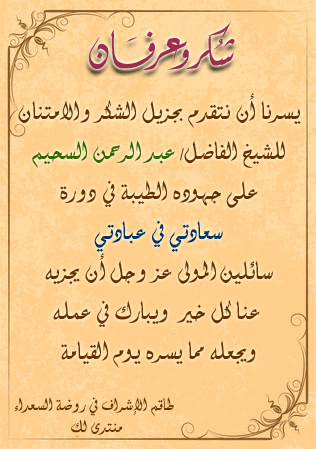 شكر وعرفان
يسرنا أن نتقدم بجزيل الشكر والامتنان
للشيخ الفاضل/ عبد الرحمن السحيم
على جهوده الطيبة في دورة
سعادتي في عبادتي
سائلين المولى عز وجل أن يجزيه
عنا كل خير ويبارك في عمله
ويجعله مما يسره يوم القيامة
طاقم الإشراف في روضة السعداء
منتدى لك